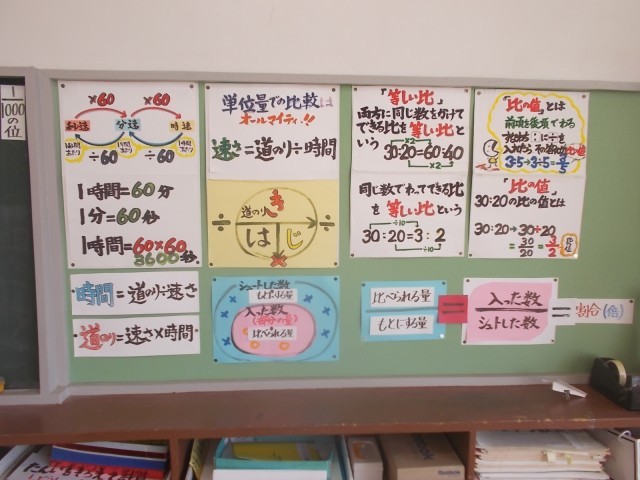 1
1000
の
位
×60 ×60
秒速 分速 時速
÷60 ÷60
1時間=60分
1分=60秒
1時間=60×60
3600秒
時間=道のり÷速さ
道のり=速さ×時間
単位量での比較は
オールマイティ!!
速さ=道のり÷時間
道のり
÷ ÷
は じ
×
シュートした数
もとにする量
入った数
(部分の量)
比べられる量
「等しい比」
両方に同じ数をかけて
できる比を等しい比と
いう
×2
30:20=60:40
×2
同じ数でわってできる比
を等しい比という
÷10
30:20=3:2
÷10
「比の値」とは
前項を後項でわる
3:5→3÷5=3/5
「比の値」
30:20の比の値とは
30:20→30÷20
=30/20=3/2
比べられる量
もとにする量
=
入った数
シュートした数
=割合(倍)